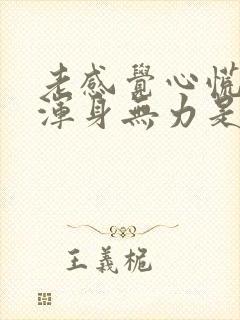 老感覺心慌
渾身無力是
王義桅